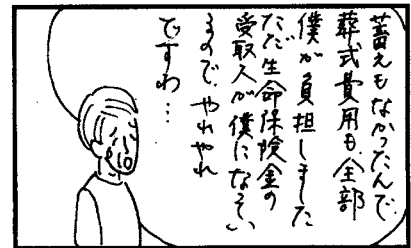 蓄えもなかったんで
葬式費用も、全部
僕が負担しました
ただ生命保険金の
受取人が僕になってい
るので、やれやれ
ですわ…